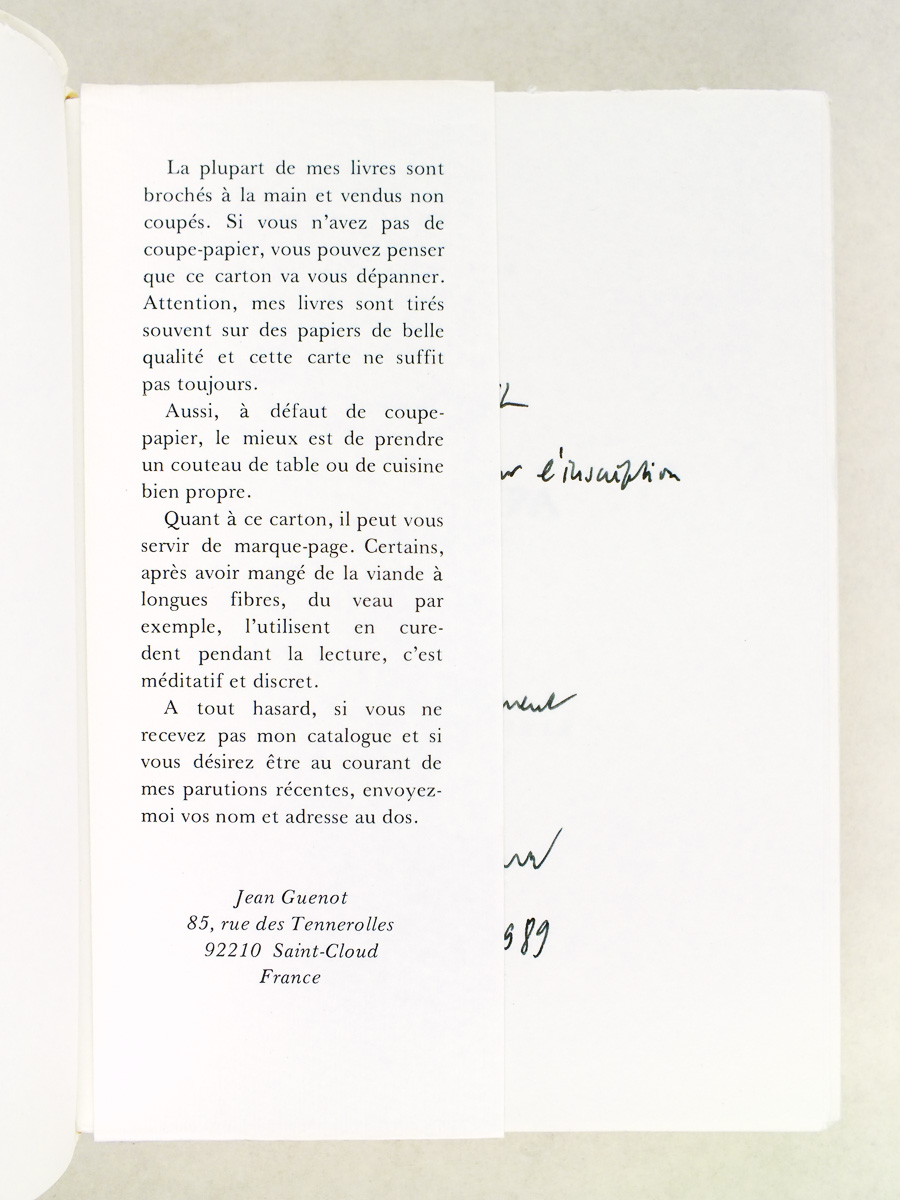 La plupart de mes livres sont
brochés à la main et vendus non
coupés. Si vous n'avez pas de
coupe-papier, vous pouvez penser
que ce carton va vous dépanner.
Attention, mes livres sont tirés
souvent sur des papiers de belle
qualité et cette carte ne suffit
pas toujours.
Aussi, à défaut de coupe-
papier, le mieux est de prendre
un couteau de table ou de cuisine
bien propre.
Quant à ce carton, il peut vous
servir de marque-page. Certains,
après avoir mangé de la viande à
longues fibres, du veau par
exemple, l'utilisent en cure-
dent pendant la lecture, c'est
méditatif et discret.
A tout hasard, si vous ne
recevez pas mon catalogue et si
vous désirez être au courant de
mes parutions récentes, envoyez-
moi vos nom et adresse au dos.
Jean Guenot
85, rue des Tennerolles
92210 Saint-Cloud
France
l'inscription
89